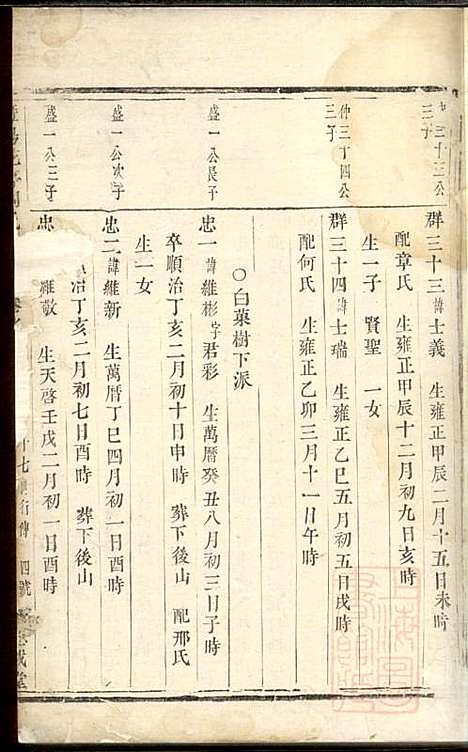 三十三公
三子
群三十三諱士義 生雍正甲辰二月十五日未時
配章氏 生雍正甲辰十二月初九日亥時
生一子 賢聖 一女
仲三丁四公
三子
群三十四諱士瑞 生雍正乙巳五月初五日戌時
配何氏 生雍正乙卯三月十一日午時
○白菓樹下派
盛一公長子
忠一諱維彬字君彩 生萬曆癸丑八月初三日子時
卒順治丁亥二月初十日申時 葬下後山 配邢氏
生一女
盛一公次子
忠二諱維新 生萬曆丁巳四月初一日酉時
治丁亥二月初七日酉時 葬下後山
盛一公三子
忠 維敬 生天啓壬戌二月初一日酉時
十七 行傳 四號